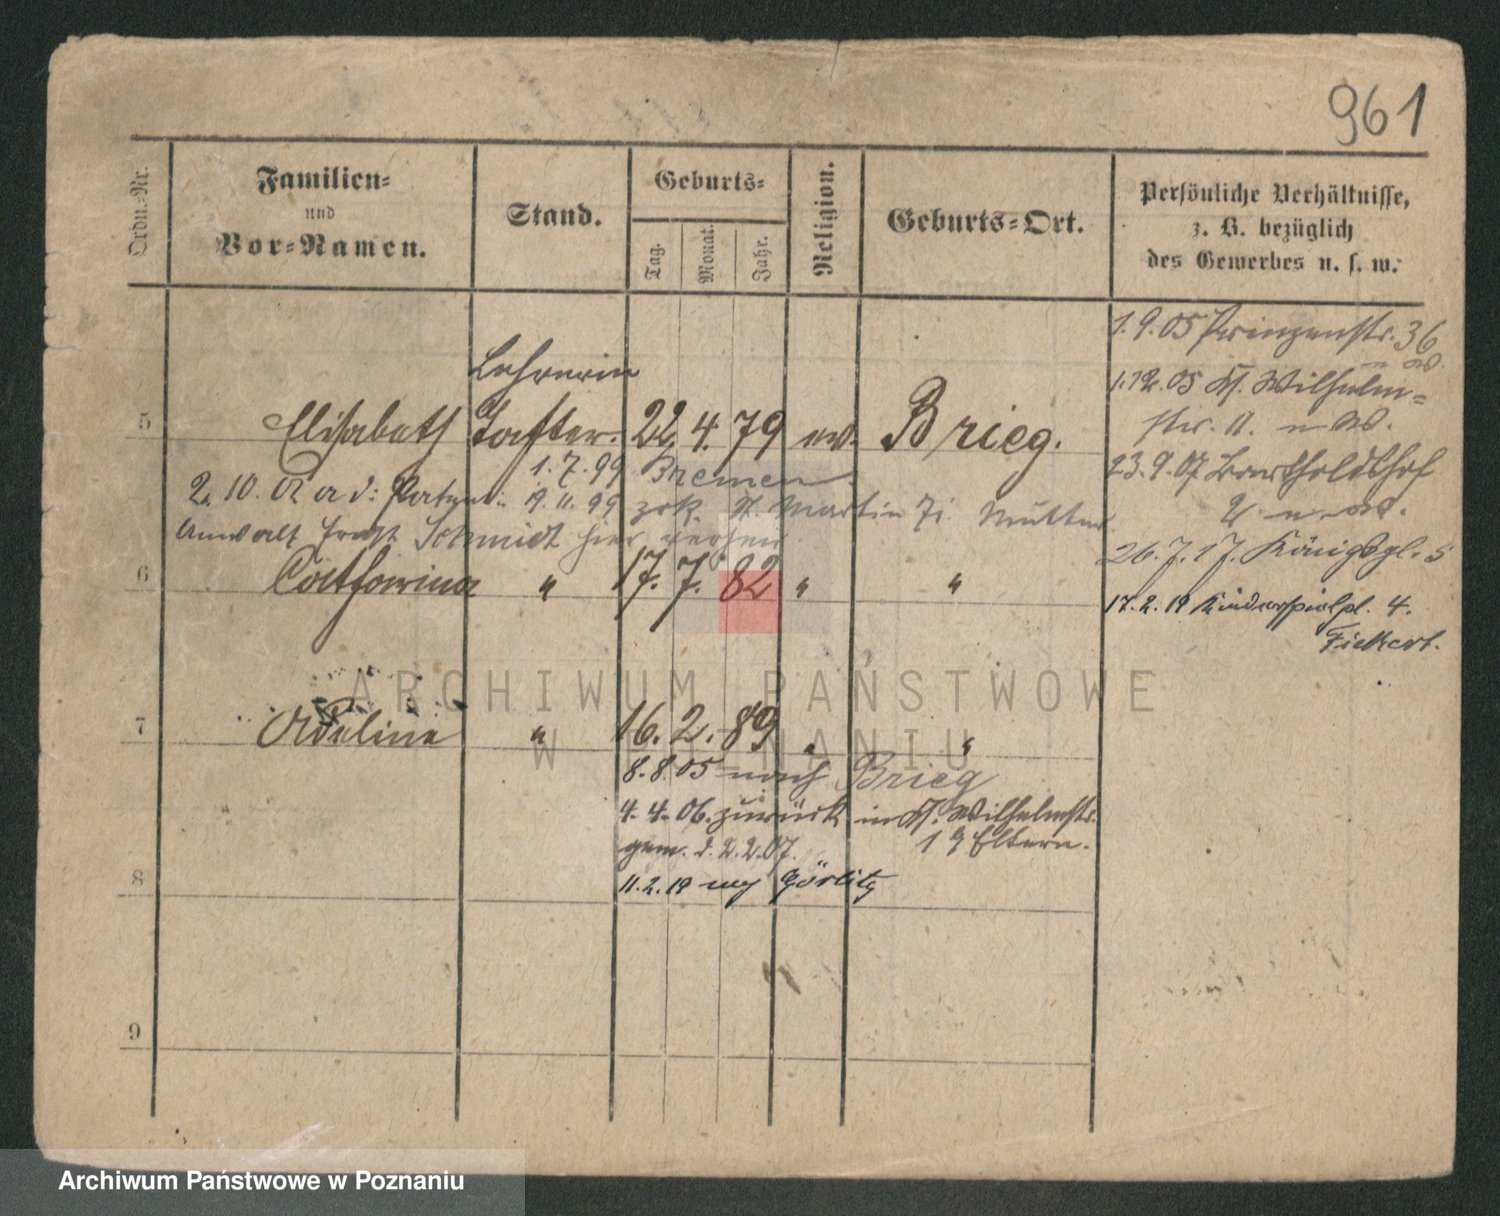 961
Ordn.-Nr.
Familien-
und
Vor-Namen.
Stand.
Geburts-
Tag.
Monat.
Jahr.
Religion.
Geburts-Ort.
Persönliche Verhältnisse,
z. B. bezüglich
des Gewerbes u. s. w.
1.9.05 Prinzenstr. 36
1.12.05 Kl. Wilhelm-
str. 11.
23.9.07 Bartholdshof
2
26.7.17. Königspl. 5
17.2.19 Kinderspielpl. 4.
Fickert.
Lehrerin
5 Elisabeth Tochter. 22. 4. 79 ev. Brieg.
1.7.99 Bremen
2. 10. 01 a d: 19.11.99 zrk. St. Martin 71. Mutter
Anwalt Schmidt hier
6 Catharina " 17. 7. 82 " "
7 Adeline " 16. 2. 89 " "
8.8.05 nach Brieg
4.4.06. zurück in Kl. Wilhelmstr.
gem. d. 2.2.07. 1 z Eltern.
8 11.2.19 nach Görlitz
9
ARCHIWUM PAŃSTWOWE
W POZNANIU
Archiwum Państwowe w Poznaniu